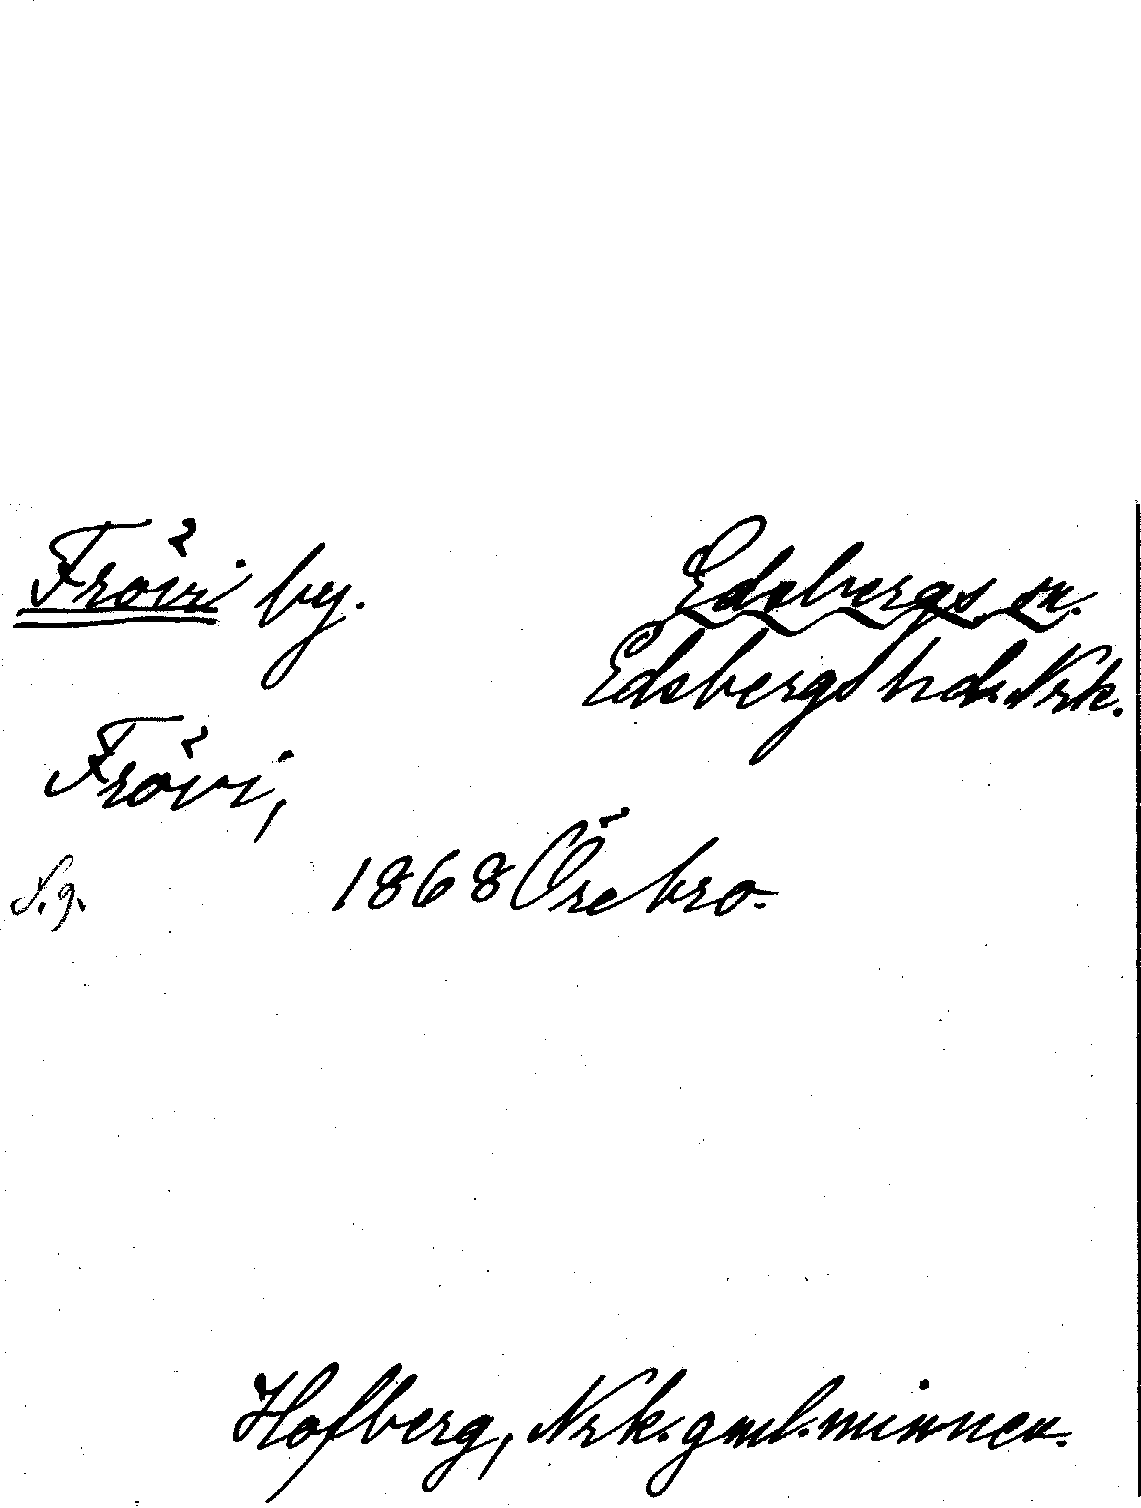 Frövi by. Edsbergs sn.
Edsbergs hd. Nrk.
Frövi,
S.g. 1868 Örebro.
Hofberg, Nrk. gml. minnen.